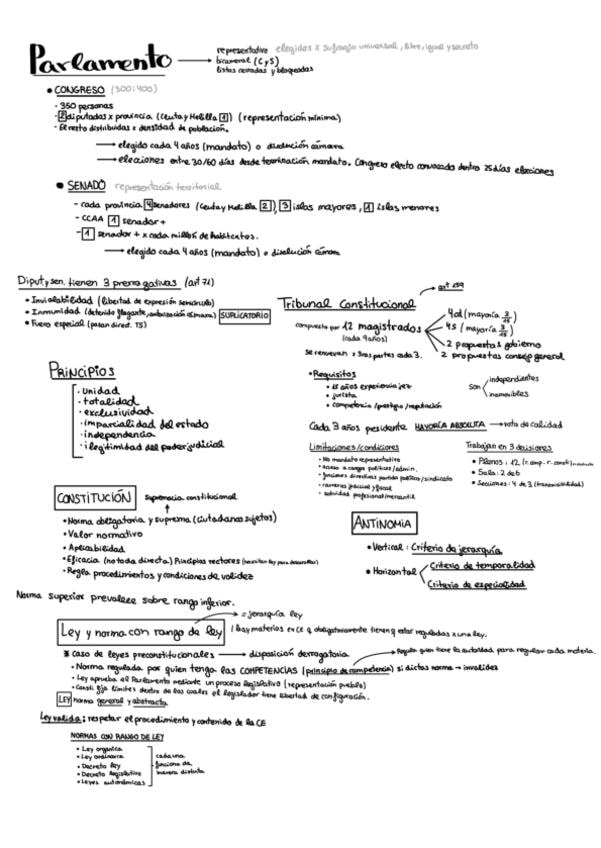 Parlamento → representativo elegidas x sufragio universal, libre, igual y secreto
bicameral (C y S)
listas cerradas y bloqueadas
• CONGRESO (300:400)
- 350 personas
- 2 diputados x provincia (Ceuta y Melilla 1) (representación mínima)
- El resto distribuidos x densidad de población.
→ elegido cada 4 años (mandato) o disolución cámara
→ elecciones entre 30/60 días desde terminación mandato. Congreso electo convocado dentro 25 días elecciones
• SENADO representación territorial
- cada provincia 4 senadores (Ceuta y Melilla 2), 3 islas mayores, 1 islas menores
- CCAA 1 senador +
- 1 senador + x cada millón de habitantes.
→ elegido cada 4 años (mandato) o disolución cámara
Diput y sen. tienen 3 prerrogativas (art 71)
• Inviolabilidad (libertad de expresión semicírculo)
• Inmunidad (detenido flagante, autorización cámara) SUPLICATORIO
• Fuero especial (pasan direct. TS)
Tribunal Constitucional → art 159
compuesto por 12 magistrados
(cada 9 años)
4 cd (mayoría 3/5)
4 S (mayoría 3/5)
2 propuestas gobierno
2 propuestas consejo general
se renuevan x 3ras partes cada 3.
• Requisitos
• 15 años experiencia jez
• jurista
• competencia/prestigio/reputación
son independientes
inamovibles
Cada 3 años presidente MAYORÍA ABSOLUTA → voto de calidad
Limitaciones/condiciones
• No mandato representativo
• acceso a cargos políticos/admin.
• funciones directivas partido político/sindicato
• carreras judicial y fiscal
• actividad profesional/mercantil
Trabajan en 3 divisiones
• Plenos : 12
• Salas : 2 de 6
• Secciones : 4 de 3
PRINCIPIOS
• unidad
• totalidad
• exclusividad
• imparcialidad del estado
• independencia
• ilegitimidad del poder judicial
CONSTITUCIÓN Supremacía constitucional
• Norma obligatoria y suprema (ciudadanos sujetos)
• Valor normativo
• Aplicabilidad
• Eficacia (no toda directa) Principios rectores (necesitan ley para desarrollar)
• Regla procedimientos y condiciones de validez
ANTINOMIA
• Vertical : Criterio de jerarquía
• Horizontal Criterio de temporalidad
Criterio de especialidad
Norma superior prevalece sobre rango inferior.
= jerarquía ley
Ley y norma con rango de ley
! hay materias en CE q obligatoriamente tienen q estar reguladas x una ley.
* caso de leyes preconstitucionales → disposición derrogatoria
Regula quien tiene la autoridad para regular cada materia.
• Norma regulada por quien tenga las COMPETENCIAS (principio de competencia) si dictas norma → invalidez
• Ley aprueba el Parlamento mediante un proceso legislativo (representación pueblo)
• Consti fija límites dentro de los cuales el legislador tiene libertad de configuración.
LEY norma general y abstracta
Ley valida : respetar el procedimiento y contenido de la CE
NORMAS CON RANGO DE LEY
• Ley organica
• Ley ordinaria
• Decreto ley
• Decreto legislativo
• Leyes autonómicas
cada una
funciona de
manera distinta